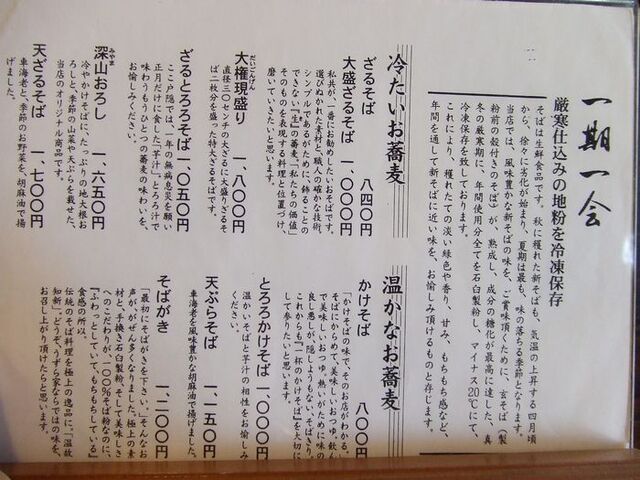 一期一会
厳寒仕込みの地粉を冷凍保存
そばは生鮮食品です。秋に穫れた新そばも、気温の上昇する四月頃
から、徐々に劣化が始まり、夏期は最も、味の落ちる季節となります。
当店では、風味豊かな新そばの味を、ご賞味頂くために、玄そば(製
粉前の殻付きのそば)が、熟成し、成分の糖化が最高に達した、真
冬の厳寒期に、年間使用分全てを石臼製粉し、マイナス20℃にて、
冷凍保存を致しております。
これにより、穫れたての淡い緑色や香り、甘み、もちもち感など、
年間を通して新そばに近い味を、お愉しみ頂けるものと存じます。
冷たいお蕎麦
ざるそば 八四〇円
大盛ざるそば 一、〇〇〇円
私共が、一番にお勧めしたいおそばです。
選びぬかれた素材と、職人の確かな技術。
シンプルであるがために、飾ることの
できない「生」の蕎麦。「私たちの価値」
そのものを表現する料理と位置づけ、
磨いていきたいと思います。
大権現盛り 一、八〇〇円
だいごんげん
直径三〇センチの大ざるに大盛りざるそ
ば二枚分を盛った特大ざるそばです。
ざるとろろそば 一、〇五〇円
ここ戸隠では、一年の無病息災を願い
正月だけに食した「芋汁」。とろろ汁で
味わうもうひとつの蕎麦の味わいを、
お愉しみください。
深山おろし 一、六五〇円
みやま
冷やかけそばに、たっぷりの地大根お
ろしと、季節の山菜や天ぷらを載せた、
当店のオリジナル商品です。
天ざるそば 一、七〇〇円
車海老と、季節のお野菜を、胡麻油で揚
げました。
温かなお蕎麦
かけそば 八〇〇円
「かけそばの味で、そのお店がわかる。」
そばはからめて、美味しいおつゆ、飲ん
で美味しいおつゆ。熱いがために味の
良し悪しが、隠しようもないおそば。
これからも「一杯のかけそば」を大切に
して参りたいと思います。
とろろかけそば 一、〇〇〇円
温かいそばと芋汁の相性をお愉しみ
ください。
天ぷらそば 一、一五〇円
車海老を風味豊かな胡麻油で揚げました。
そばがき 一、二〇〇円
「最初にそばがきを下さい。」そんなお
声が、がぜん多くなりました。極上の素
材と、手挽き石臼製粉、そして美味しさ
へのこだわりが、一〇〇%そば粉なのに、
『ふわっとしていて、もちもちしている』
食感の所以。
伝統のそば料理を極上の逸品に。「温故
知新」。どうぞ、うずら家ならではの味を、
お召し上がり頂けたらと思います。